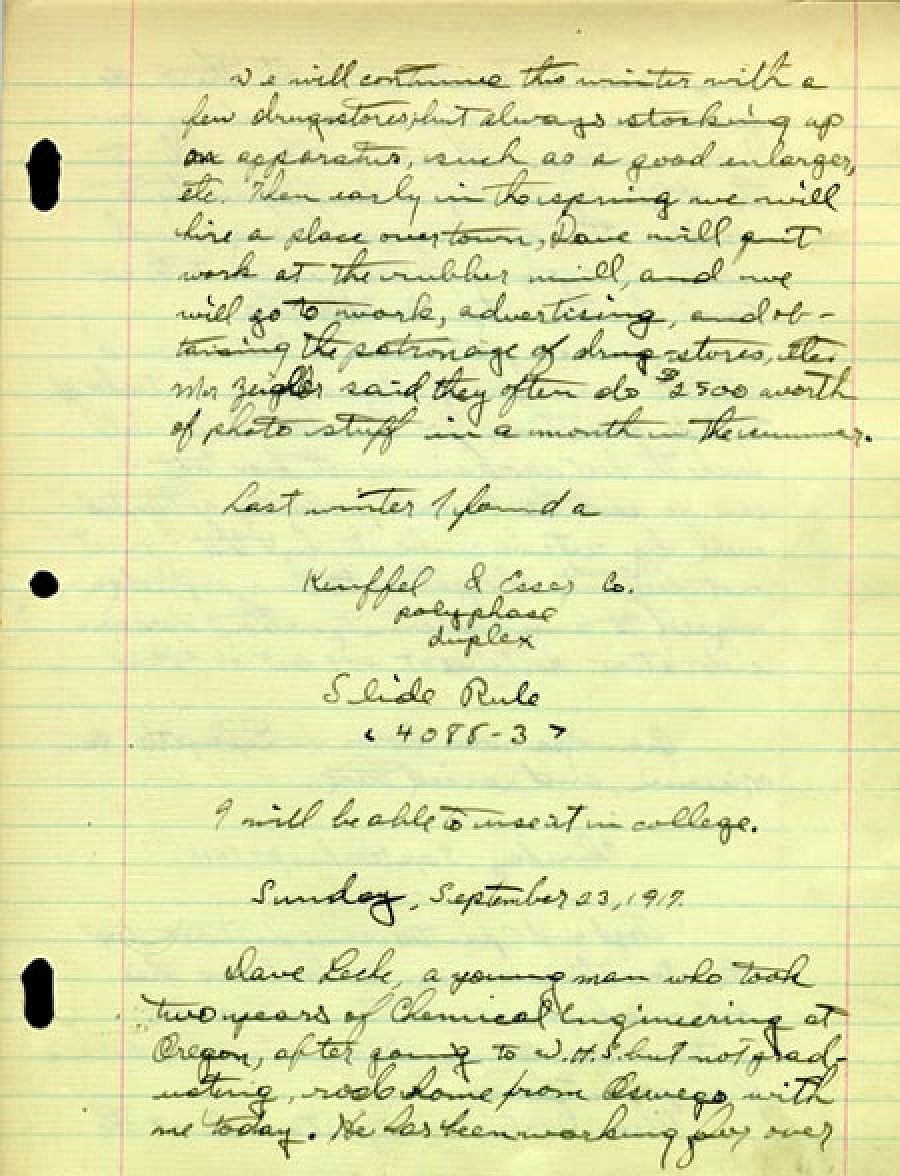 We will continue this winter with a
few drugstores, but always stocking up
on apparatus, such as a good enlarger,
etc. Then early in the spring we will
hire a place over town, Dave will quit
work at the rubber mill, and we
will go to work, advertising, and ob-
taining the patronage of drug stores, etc.
Mr Zeigler said they often do $2500 worth
of photo stuff in a month in the summer.
Last winter I found a
Keuffel & Esser Co.
polyphase
duplex
Slide Rule
(4088-3)
I will be able to use it in college.
Sunday, September 23, 1917.
Dave a young man who took
two years of Chemical Engineering at
Oregon, after going to W.H.S. but not grad-
uating, rode home from Oswego with
me today. He has been working for over